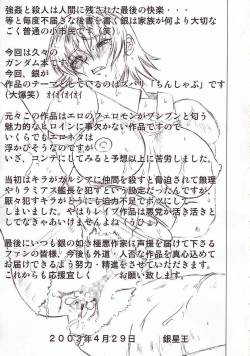 強姦と殺人は人間に残された最後の快楽・・・
等と毎度不届きな後書を書く銀は家族が何より大切な
ごく普通の小市民です（笑）
今回は久々の
ガンダム本です。
今回、銀が
作品のテーマとしているのはズバリ「ちんしゃぶ」です
（大爆笑）ｵｲｵｲｵｲｵｲ
元々この作品はエロのフェロモンがプンプンと匂う
魅力的なヒロインに事欠かない作品ですので
いくらでもエロネタは
浮かびそうなのですが
いざ、コンテにしてみると予想以上に苦労しました。
当初はキラがガルシアに仲間を殺すと脅迫されて無理
やりラミアス艦長を犯すという設定だったんですが、
厭々犯すキラがどうにも迫力不足でボツにして
しまいました。やはりレイプ作品は悪党が活き活きと
してなきゃあいけませんよね（うひょ）
最後にいつも銀の如き極悪作家に声援を届けて下さる
ファンの皆様、今後も外道・人否な作品を真心込めて
お届けできるよう努力・精進をしていただきます。
これからも応援宜しくお願い致します。
２００３年４月２９日　銀星王